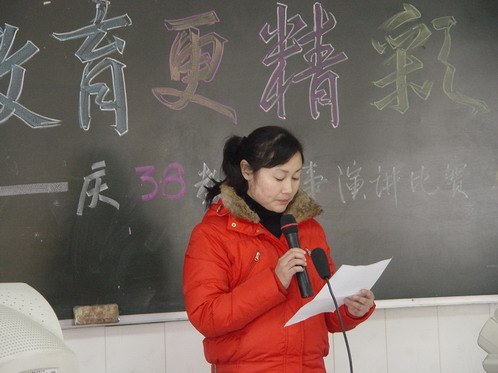 教育更精彩
庆38教 事演讲比赛